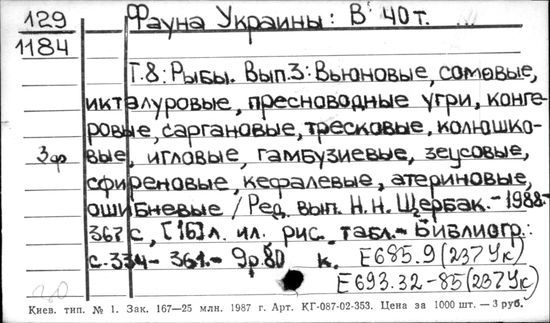 129
1184
Фауна Украины: В 40 т. ...
Т.8: Рыбы. Вып.3: Вьюновые, сомовые,
икталуровые, пресноводные угри, конге-
ровые, саргановые, тресковые, колюшко-
3ф вые, игловые, гамбузиевые, зеусовые,
сфиреновые, кефалевые, атериновые,
ошибневые / Ред. вып. Н.Н. Щербак. - 1988.-
367 с, [16] л. ил. рис. табл. - Библиогр.:
с. 334 - 361. - 9р.80 к. Е685.9(237Ук)
Е693.32-85(237Ук)
Киев. тип. № 1. Зак. 167—25 млн. 1987 г. Арт. КГ-087-02-353. Цена за 1000 шт. — 3 руб.